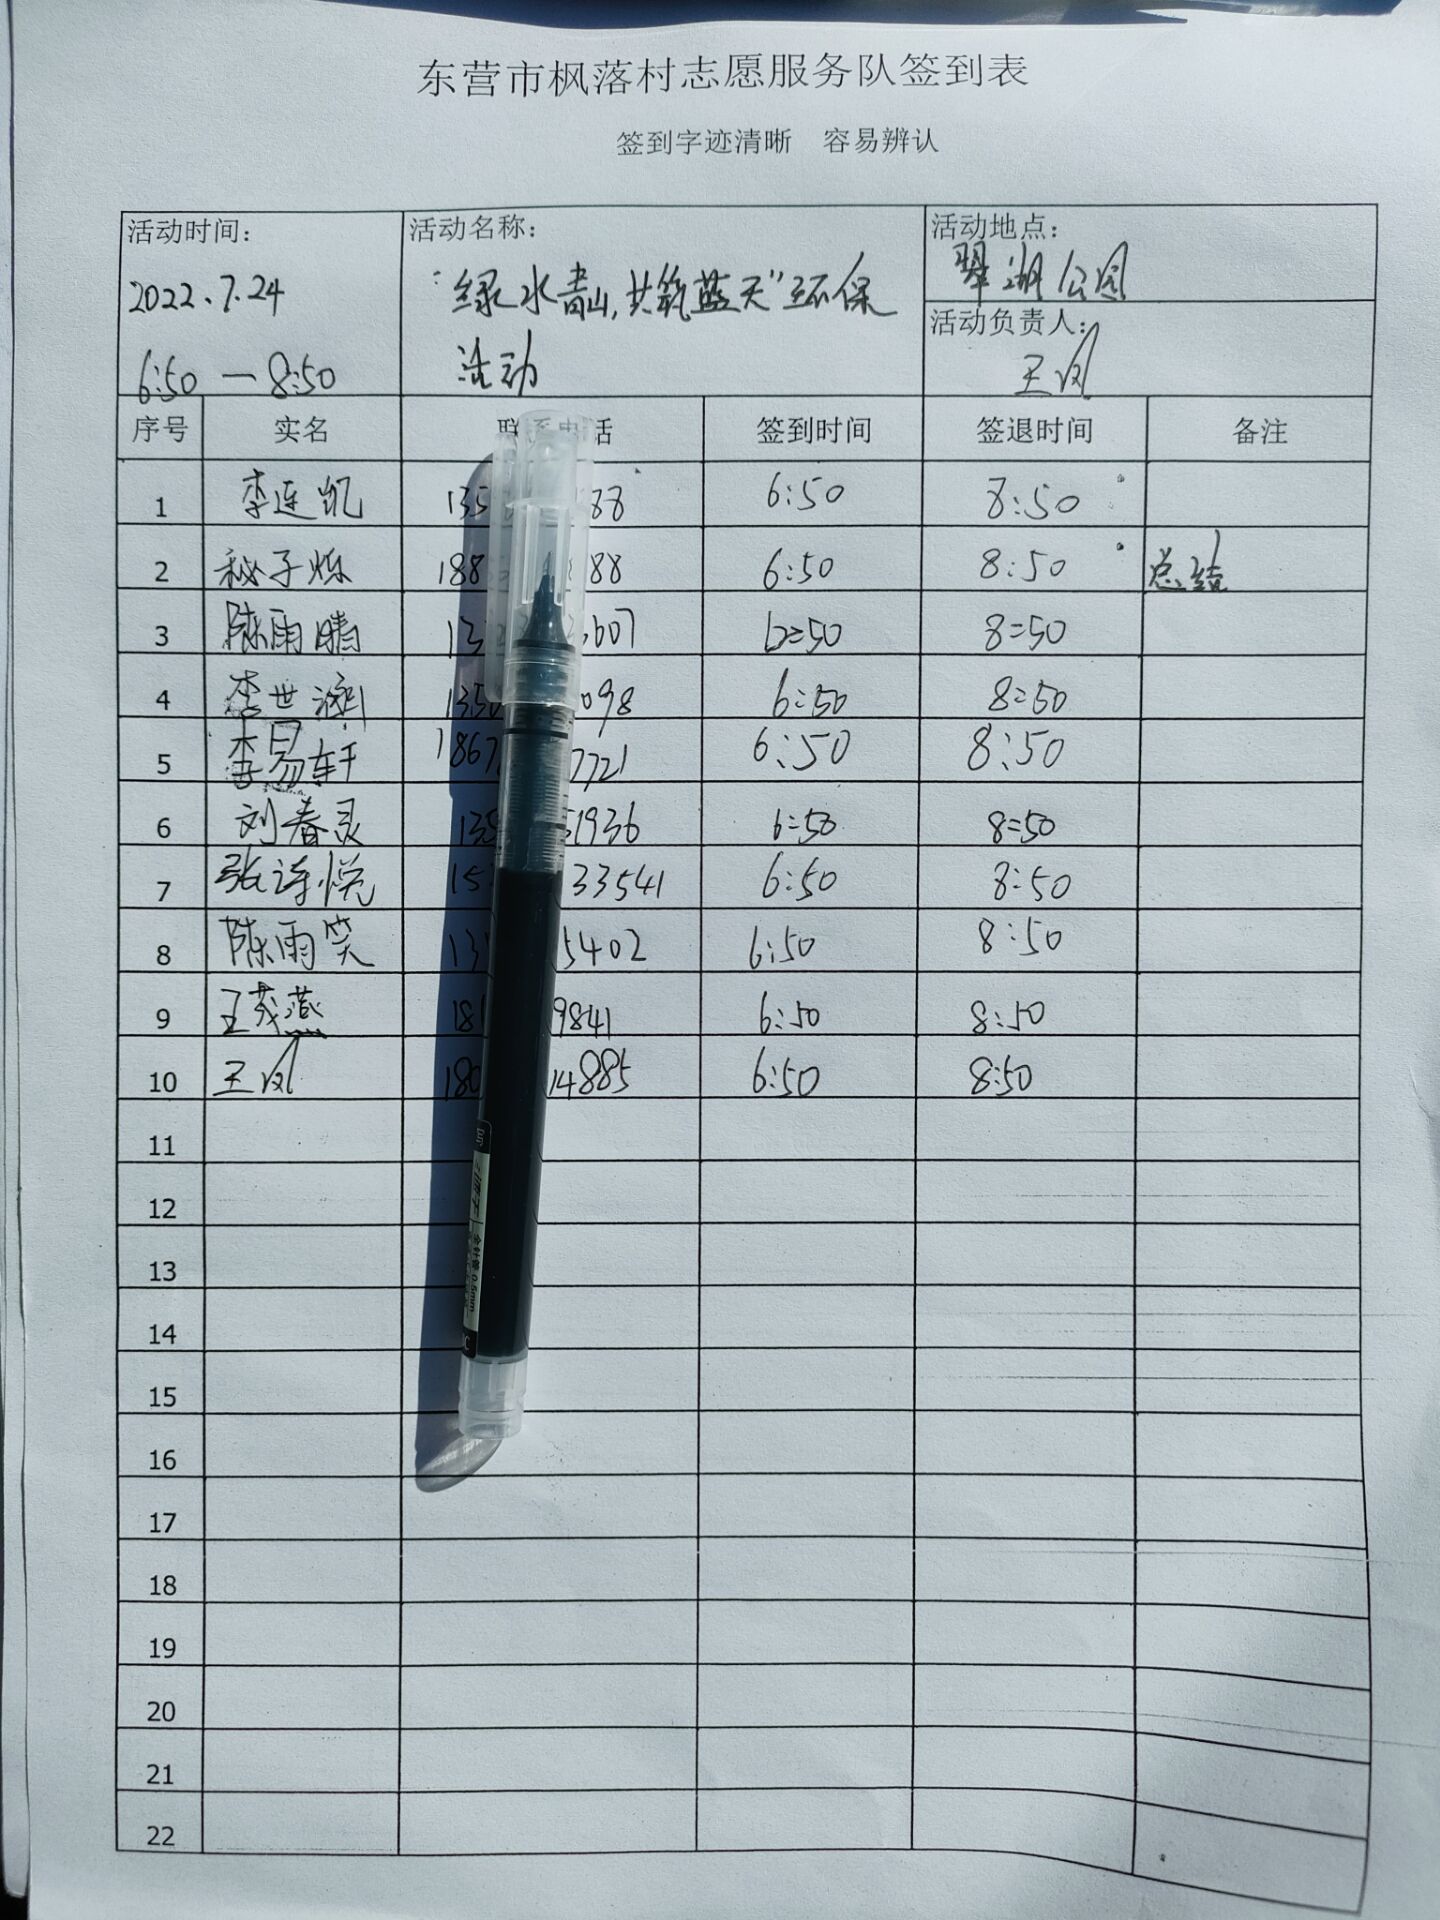 东营市枫落村志愿服务队签到表
签到字迹清晰 容易辨认
活动时间： 活动名称： 活动地点：
2022.7.24 "绿水青山,共筑蓝天"环保 翠湖公园
活动负责人：
6:50 — 8:50 活动 王凤
序号 实名 联系电话 签到时间 签退时间 备注
1 李连凯 135 88 6:50 8:50
2 秘子烁 188 88 6:50 8:50 总结
3 陈雨晴 13 3607 6:50 8:50
4 李世 1350 098 6:50 8:50
5 李易轩 1867 7721 6:50 8:50
6 刘春灵 135 1936 6:50 8:50
7 张诗悦 15 33541 6:50 8:50
8 陈雨笑 13 5402 6:50 8:50
9 王茂燕 18 9841 6:50 8:50
10 王凤 180 14885 6:50 8:50
11
12
13
14
15
16
17
18
19
20
21
22
0.5mm